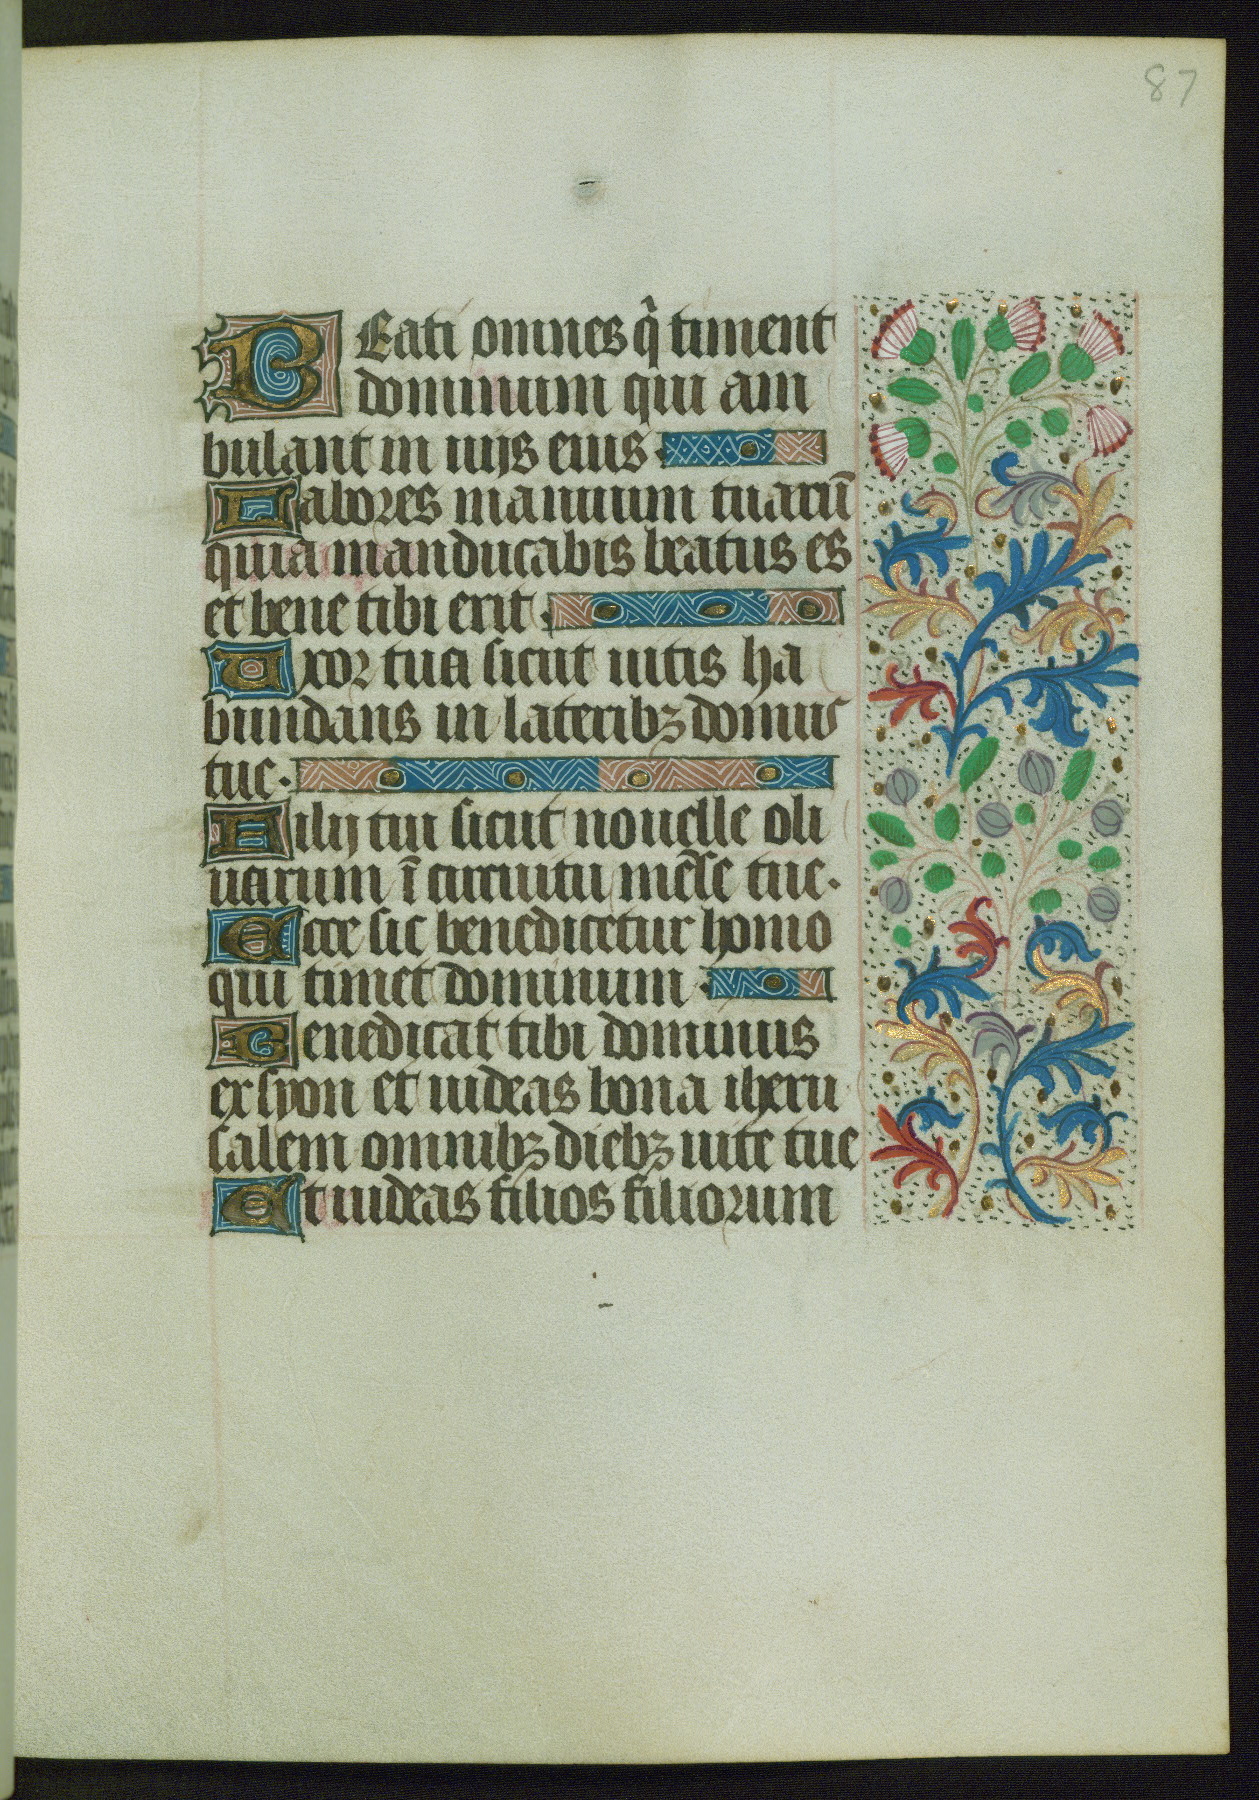 87
BEati omnes q̇ timent
dominum qui am
bulant in uijs eius.
Labores manuum tuarū
quia manducabis beatus es
et bene tibi erit.
Uxor tua sicut uitis ha
bundans in lateribꝫ domus
tue.
Filij tui sicut nouelle oli
uarum ī circuitu mēse tue.
Ecce sic benedicetur homo
qui timet dominum.
Benedicat tibi dominus
ex syon et uideas bona iheru
salem omnibꝫ diebꝫ uite tue
Et uideas filios filiorum